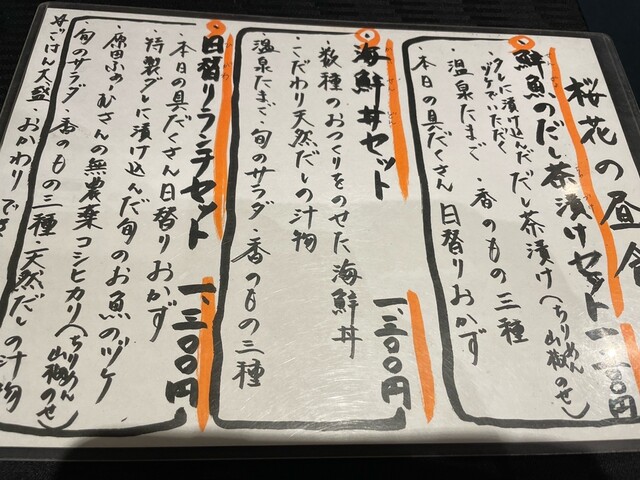 桜花の昼食
鮮魚のだし茶漬けセット 一、一〇〇円
タレに漬け込んだだし茶漬け(ちりめん山椒のせ)
ヅケでいただく
・温泉たまご ・香のもの三種
・本日の具だくさん日替りおかず
海鮮丼セット 一、三〇〇円
・数種のおつくりをのせた海鮮丼
・こだわり天然だしの汁物
・温泉たまご・旬のサラダ・香のもの三種
日替りランチセット 一、三〇〇円
・本日の具だくさん日替りおかず
・特製ダレに漬け込んだ旬のお魚のヅケ
・原田ふぁーむさんの無農薬コシヒカリ(ちりめん山椒のせ)
・旬のサラダ・香のもの三種・天然だしの汁物
ごはん大盛・おかわりでき